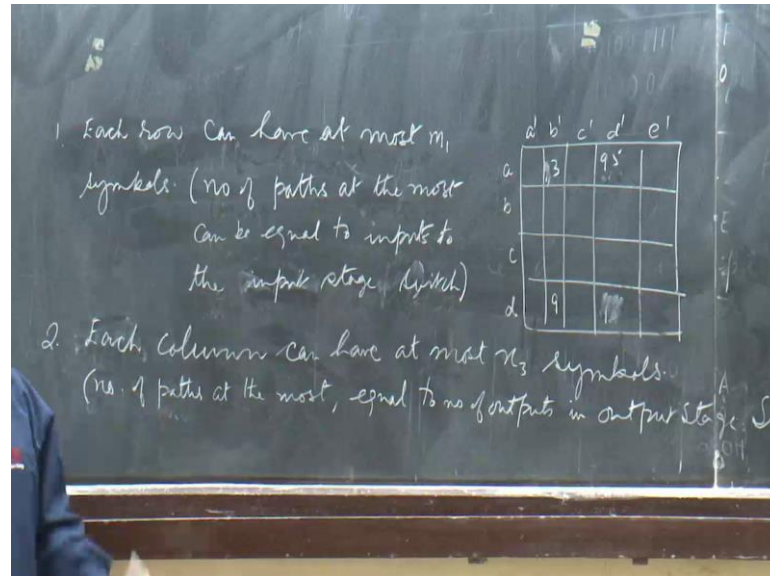 1. Each row can have at most m₁
symbols. (no of paths at the most
can be equal to inputs to
the input stage switch)
a' b' c' d' e'
a 3 9 5
b
c
d 9
2. Each column can have at most n₃ symbols.
(no. of paths at the most, equal to no of outputs in output stage. S